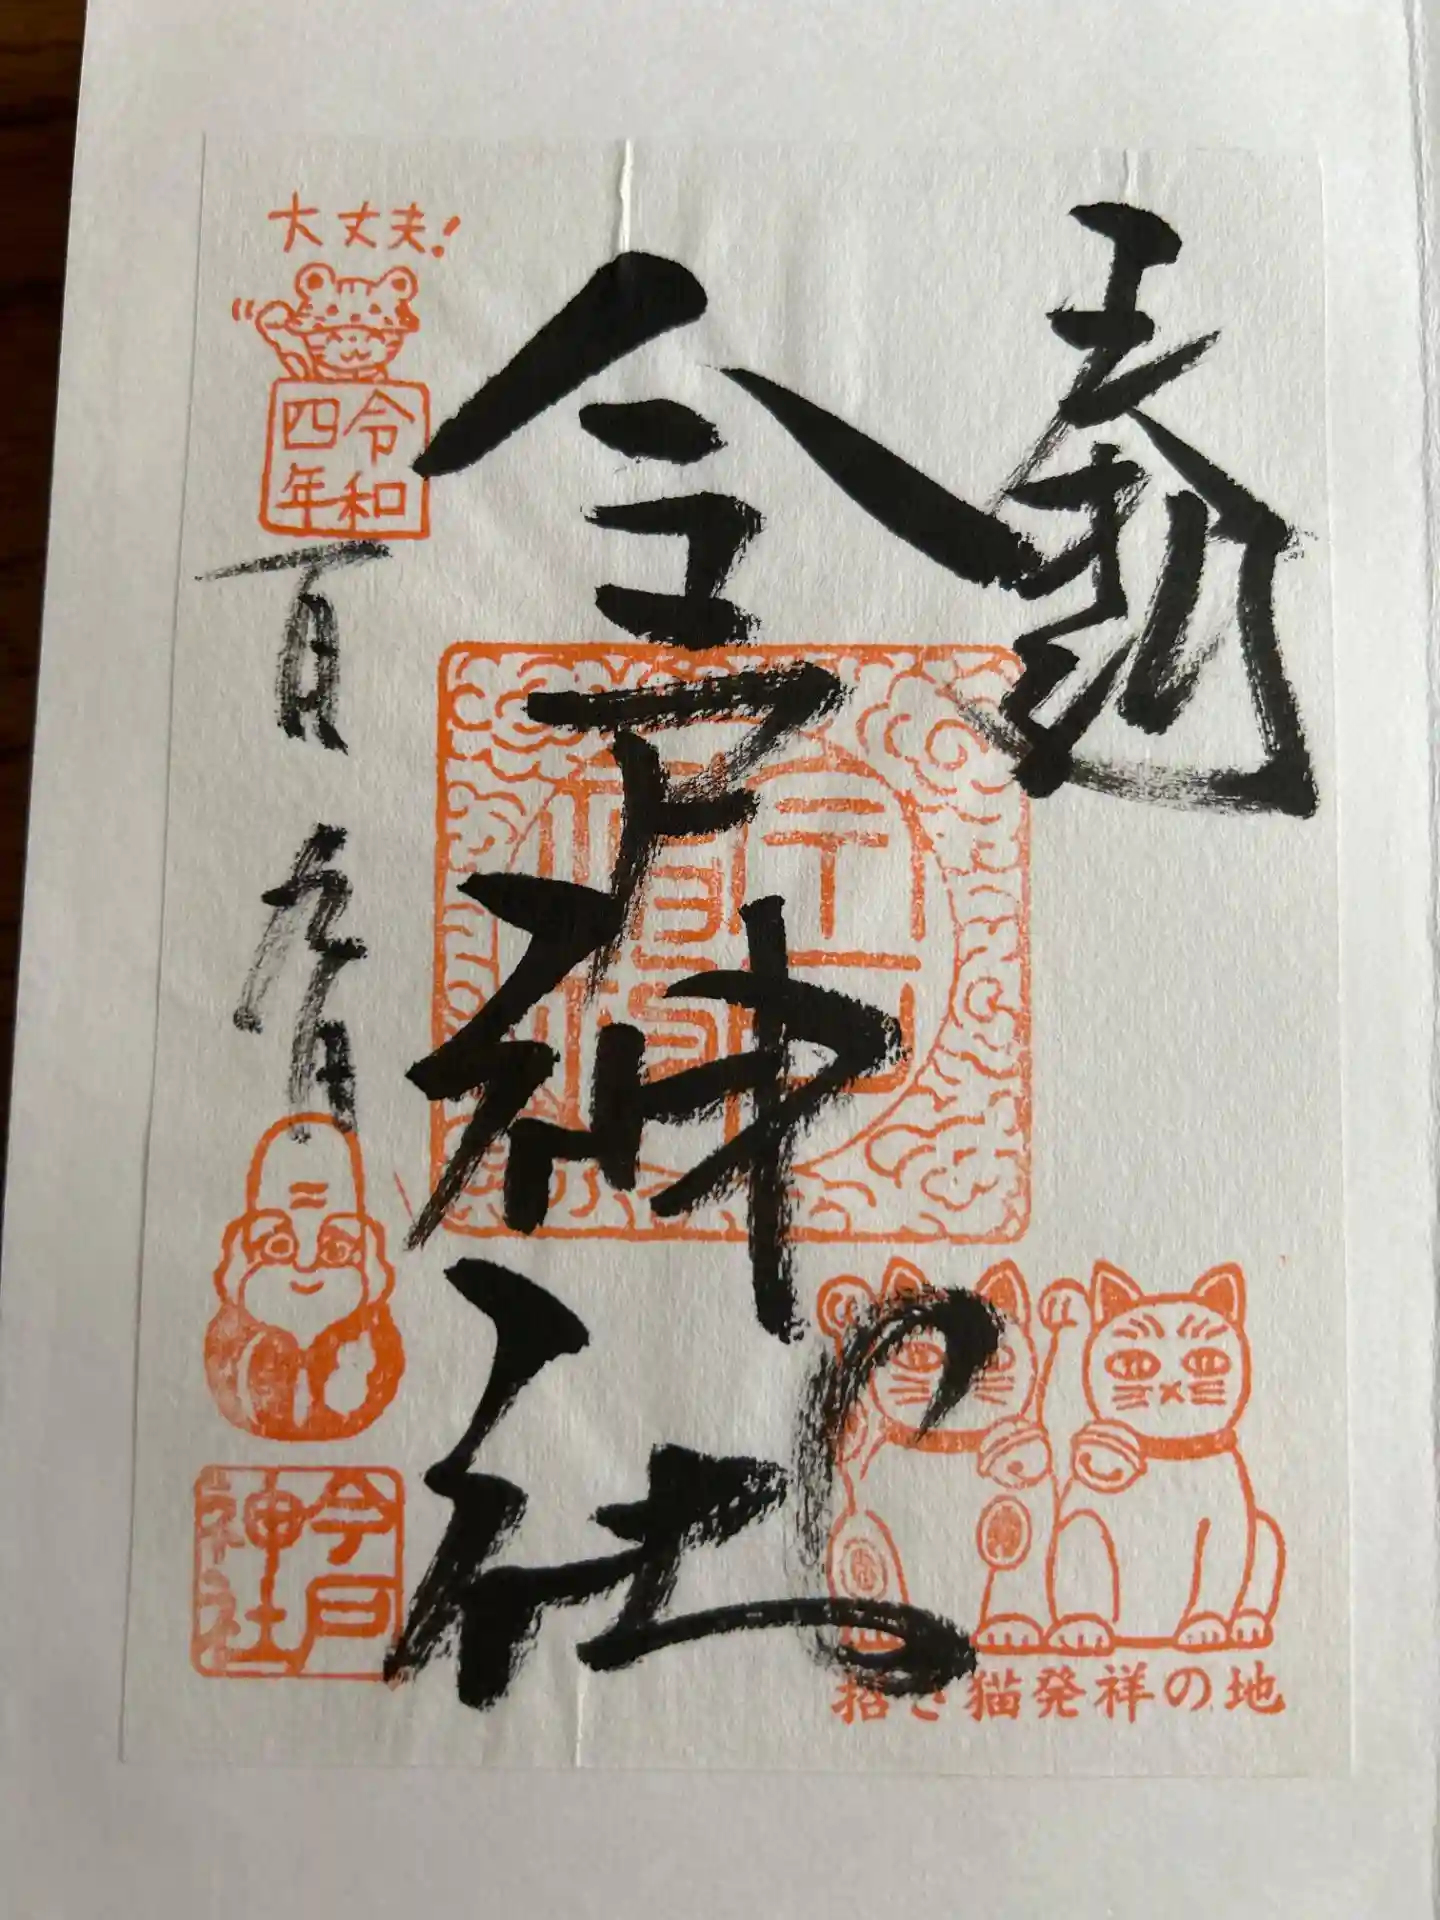 奉拝
招き猫発祥の地
今戸神社
大丈夫!
令和
四年
一月九日
今戸
神社